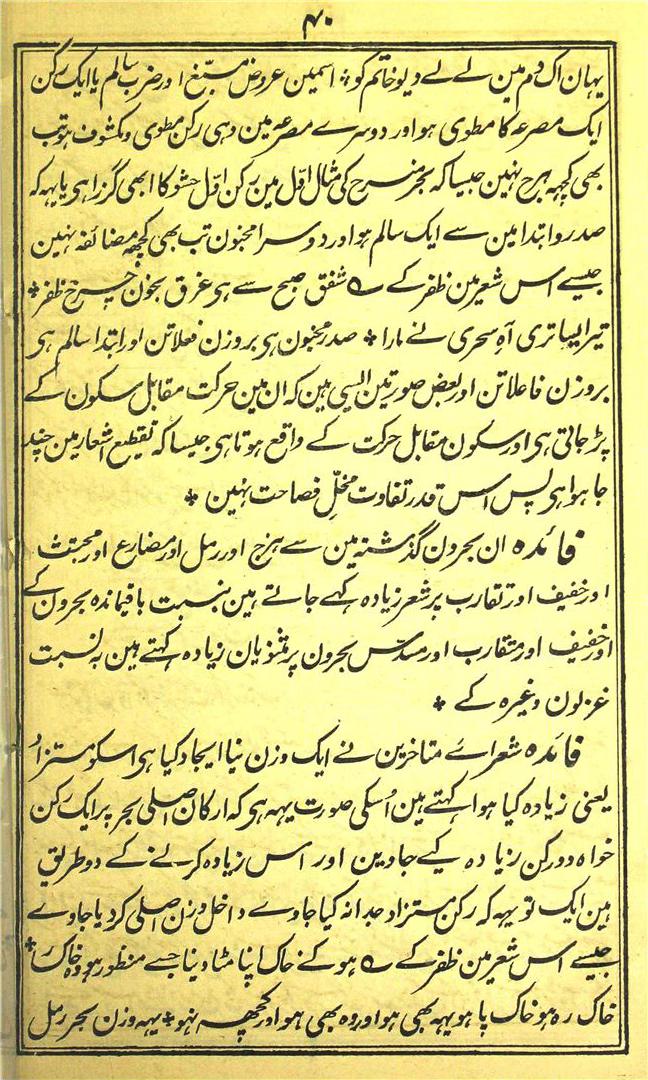 ۴۰
یہان اک دم مین لے لے دیو خاتم کو * اسمین عروض مسبّغ اور ضرب سالم یا ایک رکن
ایک مصرعہ کا مطوی ہو اور دوسرے مصرعہ مین وہی رکن مطوی و مکشوف ہو تب
بھی کچہہ ہرج نہین جیسا کہ بحر منسرح کی مثال اوّل مین رکن اوّل حشو کا ابھی گزرا ہی یا یہہ کہ
صدر و ابتدا مین سے ایک سالم ہو اور دوسرا مخبون تب بھی کچھہ مضائقہ نہین
جیسے اس شعر مین ظفر کے ؎ شفق صبح سے ہی غرق بخون چرخ ظفر *
تیر ایسا تری آہِ سحری نے مارا * صدر مخبون ہی بروزن فعلاتن اور ابتدا سالم ہی
بروزن فاعلاتن اور بعض صورتین ایسی ہین کہ ان مین حرکت مقابل سکون کے
پڑ جاتی ہی اور سکون مقابل حرکت کے واقع ہوتا ہی جیسا کہ تقطیع اشعار مین چند
جا ہوا ہی پس اس قدر تفاوت مخلّ فصاحت نہین *
فائدہ ان بحرون گذشتہ مین سے ہزج اور رمل اور مضارع اور مجتث
اور خفیف اور تقارب پر شعر زیادہ کہے جاتے ہین بنسبت باقیماندہ بحرون کے
اور خفیف اور متقارب اور مسدّس بحرون پر مثنویان زیادہ کہتے ہین بہ نسبت
غزلون وغیرہ کے *
فائدہ شعراے متاخرین نے ایک وزن نیا ایجاد کیا ہی اسکو مستزاد
یعنی زیادہ کیا ہوا کہتے ہین اُسکی صورت یہہ ہی کہ ارکان اصلی بحر پر ایک رکن
خواہ دو رکن زیادہ کیے جاوین اور اس زیادہ کرنے کے دو طریق
ہین ایک تو یہہ کہ رکن مستزاد جدا نہ کیا جاوے داخل وزن اصلی کر دیا جاوے
جیسے اس شعر مین ظفر کے ؎ ہو کے خاک اپنا مٹا دینا جسے منظور ہو وہ خاکسار *
خاک رہ ہو خاک پا ہو یہہ بھی ہو اور وہ بھی ہو اور کچھہ نہو * یہہ وزن بحر رمل